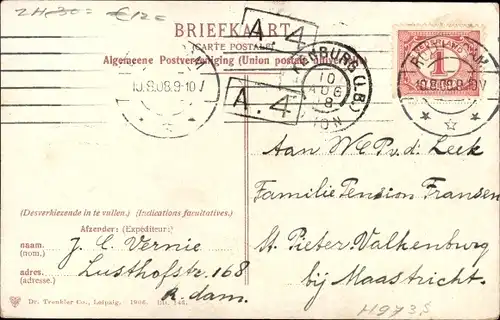 2H-30= €12=
BRIEFKAART
(CARTE POSTALE)
Algemeene Postvereeniging (Union postale universelle)
A. 4
A. 4
10.8.08.9-10 V
VALKENBURG (L.B.)
10
AUG
8
10N
NEDERLAND
1
ROTTERDAM
10.8.08.9-10V
Aan W C P.v.d. Leek
Familie Pension Fransen
St. Pieter. Valkenburg
bij Maastricht.
(Desverkiezende in te vullen.) (Indications facultatives.)
Afzender: (Expéditeur:)
naam. J. C. Vernie
(nom.)
adres. Lusthofstr. 168
(adresse.) R.dam.
Dr. Trenkler Co., Leipzig. 1906.
H973,5